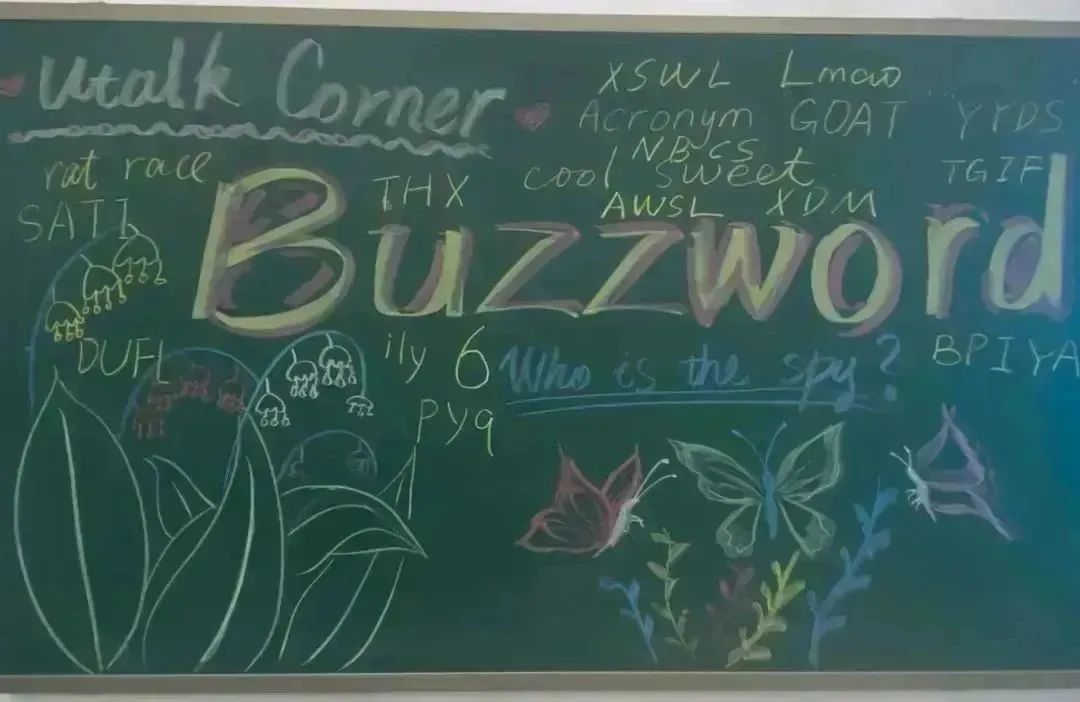 Utalk Corner
XSWL Lmao
Acronym GOAT YYDS
NB CS
rat race THX cool sweet TGIF
SATI AWSL XDM
Buzzword
DUFL ily 6 Who is the spy? BPIYA
pyq